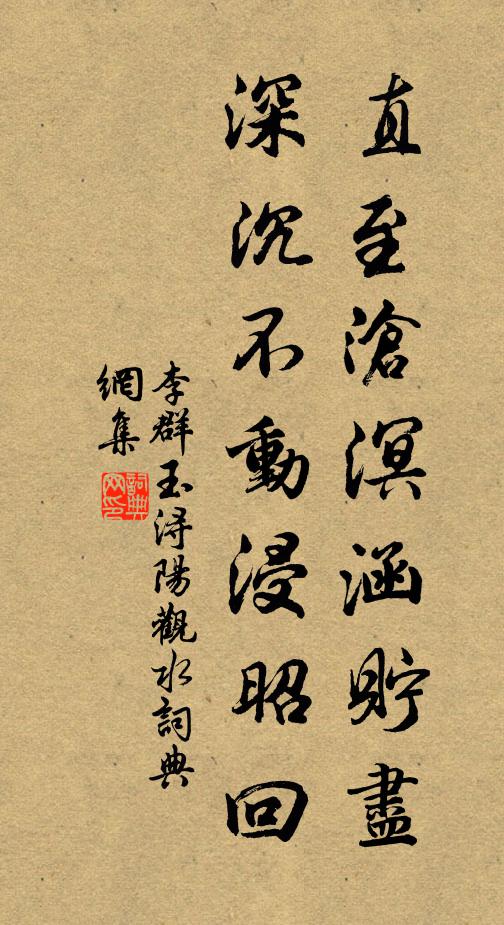 直至滄溟涵貯盡
深沉不動浸昭回
李群玉潯陽觀水詞典
網集
詞典
网印